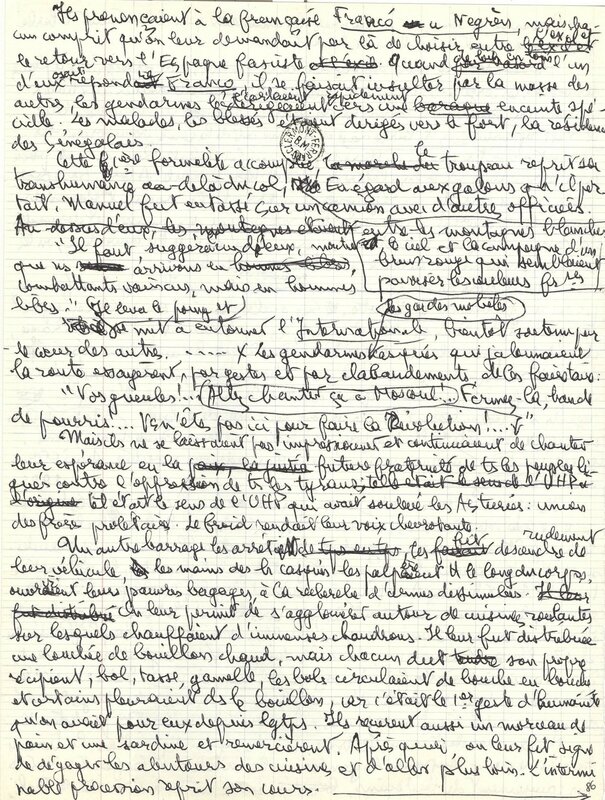 Ils prononçaient à la française Francó ou Negrèn, mais cha-
cun comprit qu'on leur demandait par là de choisir entre l'exil et
le retour vers l'Espagne fasciste. Quand l'un
d'eux répondait Franco, il se faisait insulter par la masse des
autres, les gendarmes vers une enceinte spé-
ciale. Les malades, les blessés étaient dirigés vers le fort, la résidence
des Sénégalais.
Cette formalité accomplie, le troupeau reprit sa
transhumance au-delà du col. Eu égard aux galons qu'il por-
tait, Manuel fut entassé sur un camion avec d'autres officiers.
Au-dessus d'eux, les montagnes étaient entre les montagnes blanches,
"Il faut, suggéra un d'eux, le ciel et la campagne d'un
que ns arrivions en brun rouge qui semblaient
combattants vaincus, mais en hommes pavoiser les couleurs frses
libres." Il leva le poing et les gardes mobiles
se mit à entonner l'Internationale, bientôt soutenu par
le chœur des autres. Les gendarmes qui jalonnaient
la route essayèrent, par gestes et par clabaudements, de les faire taire:
"Vos gueules!... Allez chanter ça à Moscou!... Fermez-la, bande
de pourris!... Vs n'êtes pas ici pour faire la Révolution!..."
Mais ils ne se laissaient pas impressionner et continuaient de chanter
leur espérance en la future fraternité de ts les peuples li-
gués contre l'oppression de ts les tyrans; tel était le sens de l'UHP
tel était le sens de l'UHP qui avait soulevé les Asturies: union
des frères prolétaires. Le froid rendait leur voix chevrotante.
Un autre barrage les arrêta. On les fit rudement descendre de
leur véhicule, les mains des les palpèrent le long du corps,
ouvrirent leurs pauvres bagages, à la recherche d'armes dissimulées.
On leur permit de s'agglomérer autour de cuisines roulantes
sur lesquels chauffaient d'immenses chaudrons. Il leur fut distribuée
une louchée de bouillon chaud, mais chacun dut tendre son propre
récipient, bol, tasse, gamelle, les bols circulaient de bouche en bouche
et certains pleuraient ds le bouillon, car c'était le 1er geste d'humanité
qu'on avait pour eux depuis lgtps. Ils reçurent aussi un morceau de
pain et une sardine et remercièrent. Après quoi on leur fit signe
de dégager les alentours des cuisines et d'aller plus loin. L'intermi
nable procession reprit son cours.
86